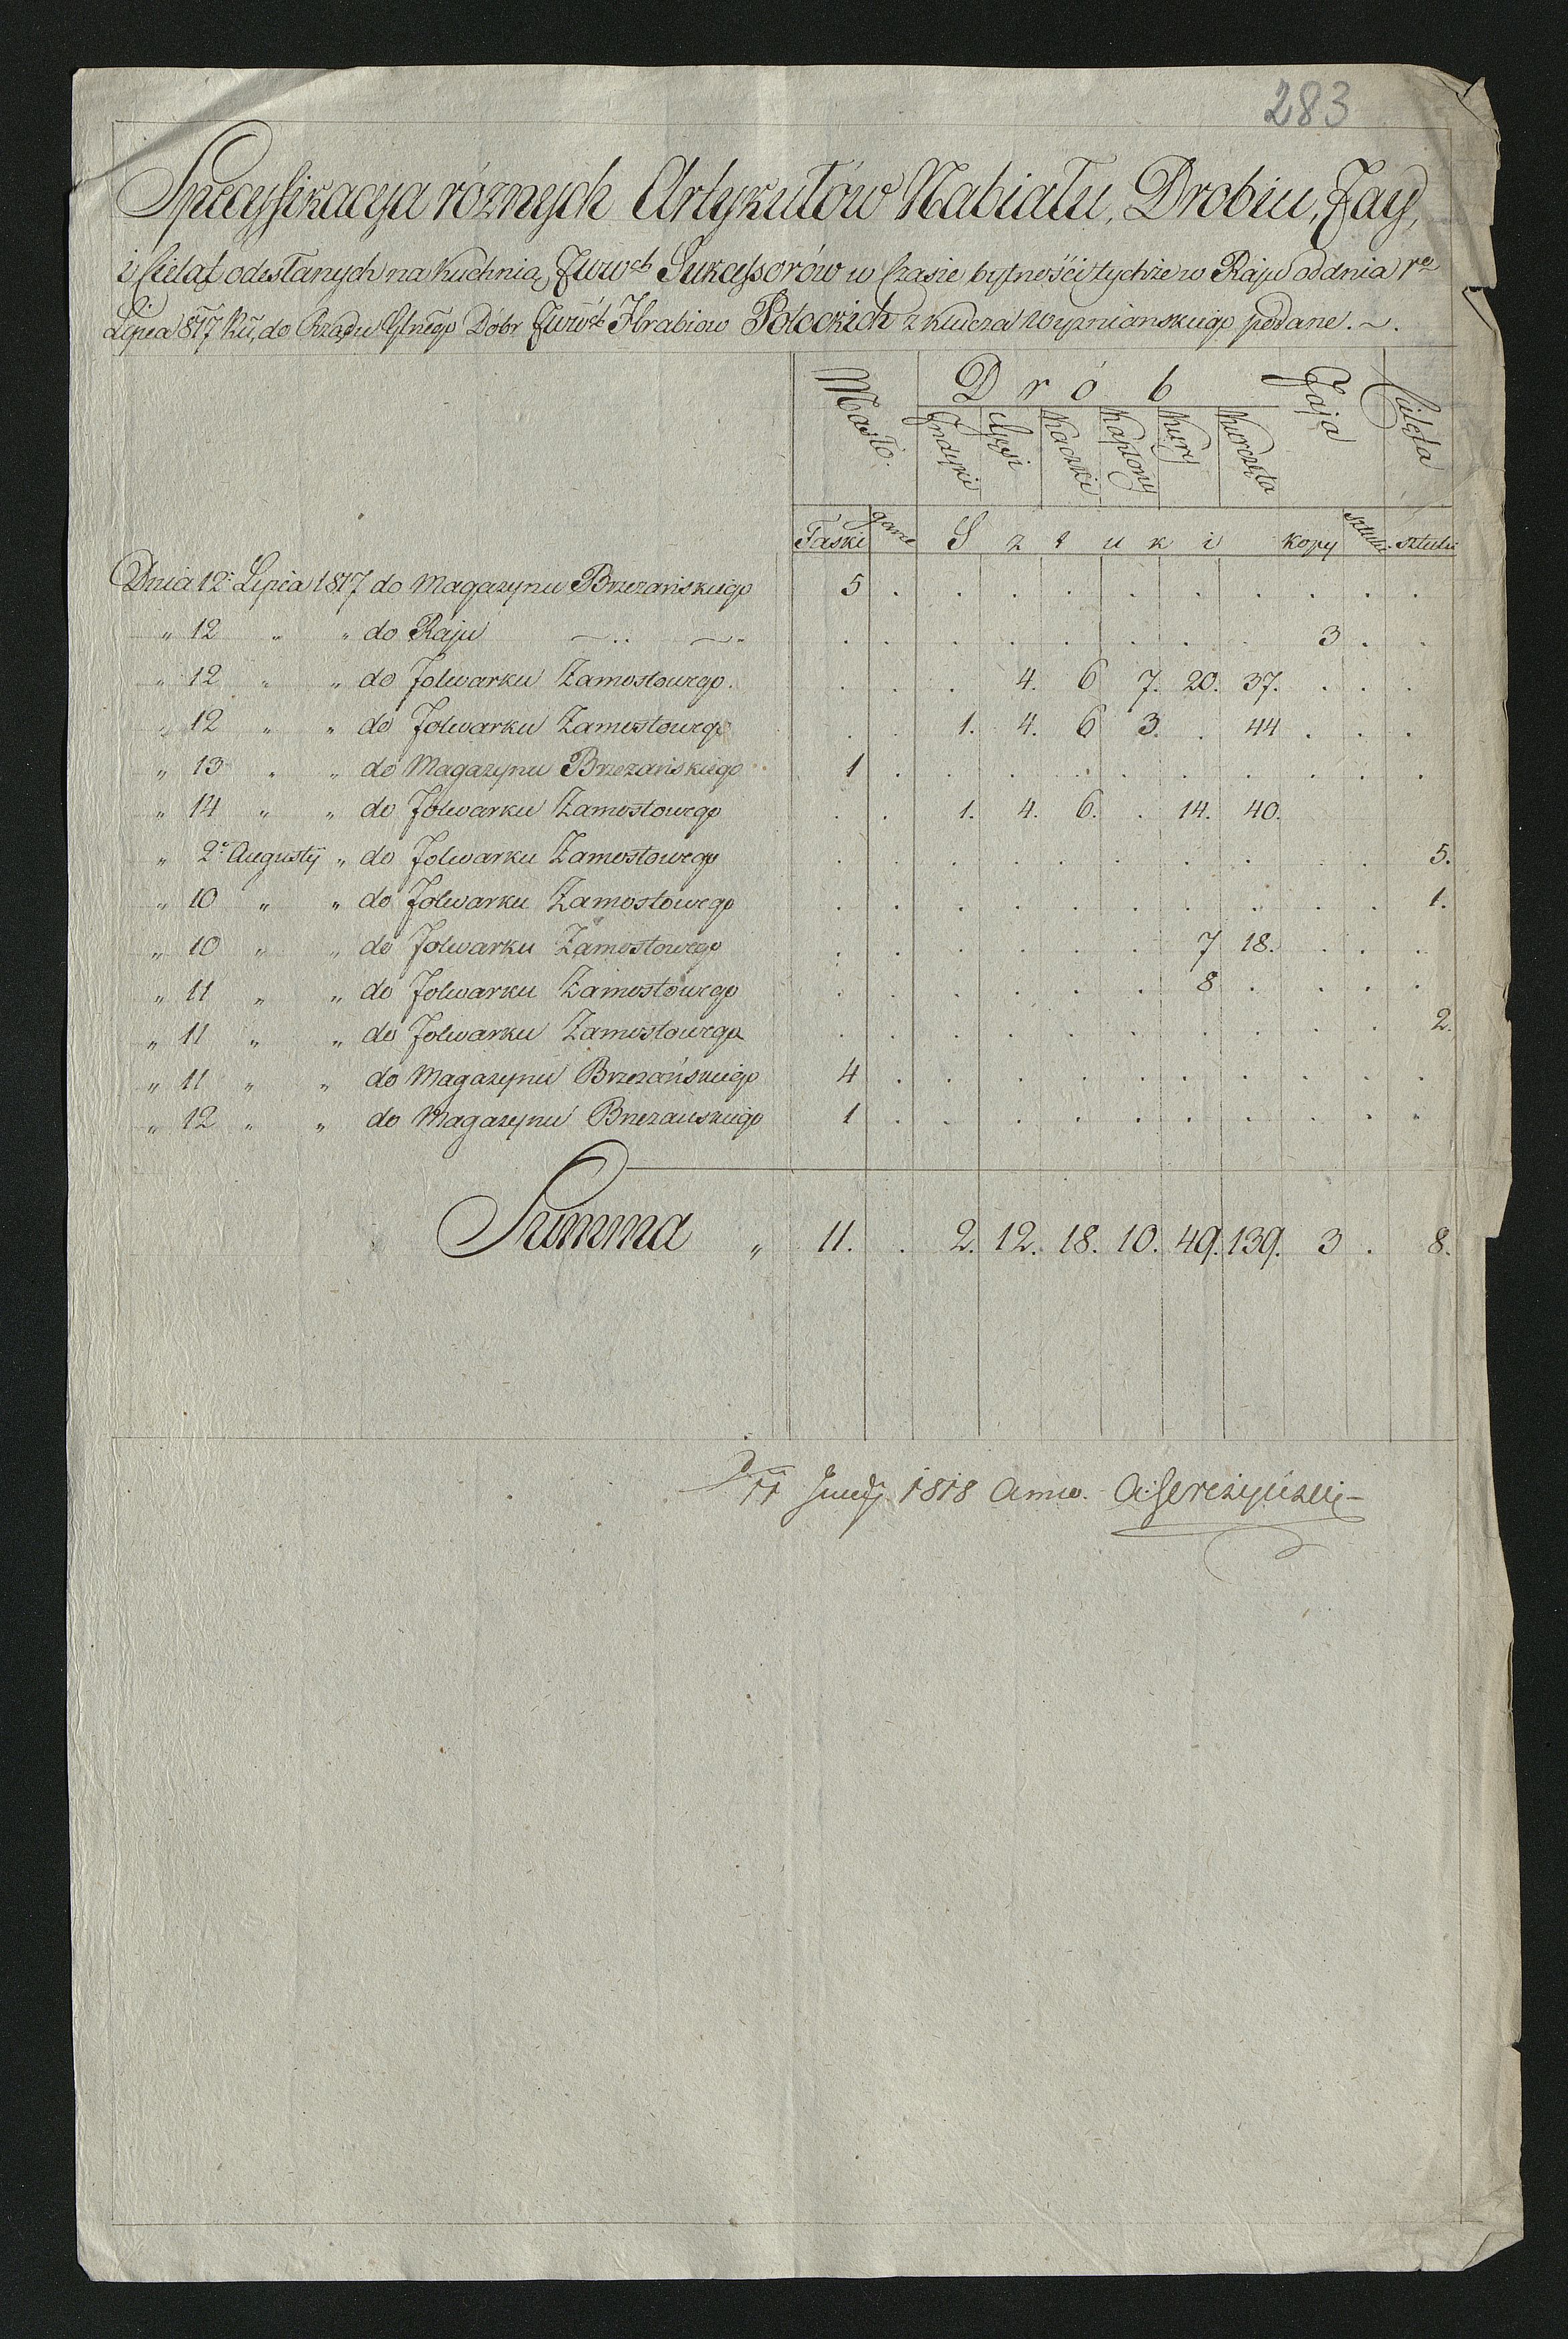 283
Specyfikacya róznych Artykułów Nabiału, Drobiu, Jay,
i Cieląt odesłanych na Kuchnią JWW<sup>ch</sup> Sukcessorów w Czasie bytności tychże w Raju od dnia 1<sup>go</sup>
Lipca 817 Ru, do Rządu Głnego Dóbr JWW<sup>ch</sup> Hrabiow Potockich z Klucza Wypnianskiego podane. ~.
Masło. D r ó b Jaja Cielęta
Indyki Gęsi Kaczki Kapłony Kury Kurczęta
Faski garne S z t u k i kopy sztuki sztuki
Dnia 12. Lipca 1817 do Magazynu Brzezańskiego 5 . . . . . . . . . .
„ 12 „ „ do Raju . . . . . . . . 3 . .
„ 12 „ „ do Folwarku Zamostowego. . . . 4. 6 7. 20. 37. . . .
„ 12 „ „ do Folwarku Zamostowego . . 1. 4. 6 3. . 44 . . .
„ 13 „ „ do Magazynu Brzezańskiego 1 . . . . . . . . . .
„ 14 „ „ do Folwarku Zamostowego . . 1. 4. 6. . 14. 40.
„ 2. Augusty „ do Folwarku Zamostowego . . . . . . . . . . 5.
„ 10 „ „ do Folwarku Zamostowego . . . . . . . . . . 1.
„ 10 „ „ do Folwarku Zamostowego . . . . . . 7 18. . . .
„ 11 „ „ do Folwarku Zamostowego . . . . . . 8 . . . .
„ 11 „ „ do Folwarku Zamostowego . . . . . . . . . . 2.
„ 11 „ „ do Magazynu Brzezańskiego 4 . . . . . . . . . .
„ 12 „ „ do Magazynu Brzezanskiego 1 . . . . . . . . . .
Summa „ 11. . 2. 12. 18. 10. 49. 139. 3 . 8.
D 11 Juny 1818 Anno.